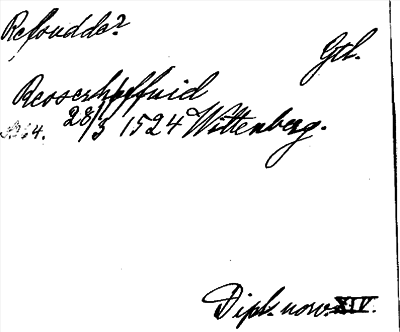 Refoudde?
Gtl.
Resserhoffnid
28/3 1524 Wittenberg.
Dipl. norv. XIV.